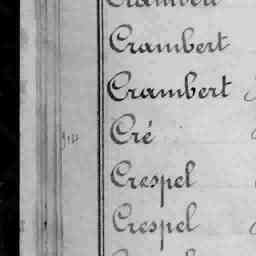 Crambert
Crambert
Crambert
Cré
Crespel
Crespel